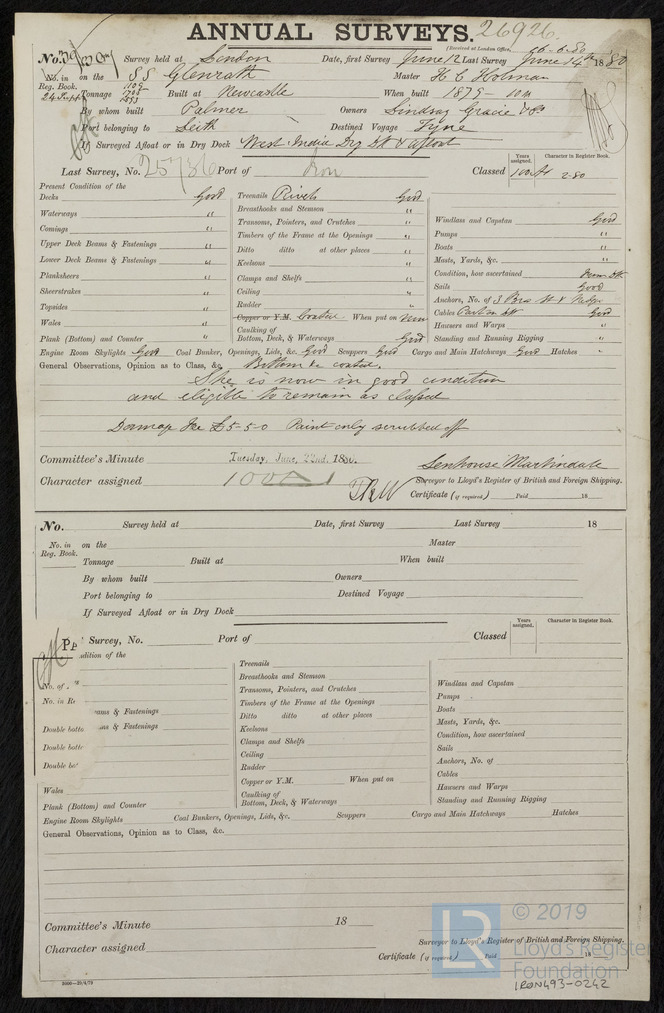 ANNUAL SURVEYS. 26926.
(Received at London Office, 16-6-80
No. Survey held at London Date, first Survey June 12 Last Survey June 14th 1880
No. in Reg. Book. on the SS Glenrath Master H C Holman
24 Supp Tonnage Built at Newcastle When built 1879 - 10m
By whom built Palmer Owners Lindsay Gracie & Co
Port belonging to Leith Destined Voyage Tyne
If Surveyed Afloat or in Dry Dock West India Dry Dk & afloat
Last Survey, No. 25736 Port of Iron Classed Years assigned. 100A1 Character in Register Book. 2.80
Present Condition of the
Decks Good Treenails Rivets Good
Waterways " Breasthooks and Stemson " Windlass and Capstan Good
Comings " Transoms, Pointers, and Crutches " Pumps "
Upper Deck Beams & Fastenings " Timbers of the Frame at the Openings " Boats "
Lower Deck Beams & Fastenings " Ditto ditto at other places " Masts, Yards, &c. "
Planksheers " Keelsons " Condition, how ascertained from Dk
Sheerstrakes " Clamps and Shelfs " Sails Good
Topsides " Ceiling " Anchors, No. of 3 Brs St & Kedge
Wales " Rudder " Cables Part on Dk Good
Plank (Bottom) and Counter " Copper or Y.M. Coated When put on Now Hawsers and Warps "
Caulking of Bottom, Deck, & Waterways Good Standing and Running Rigging "
Engine Room Skylights Good Coal Bunker, Openings, Lids, &c. Good Scuppers Good Cargo and Main Hatchways Good Hatches "
General Observations, Opinion as to Class, &c. Bottom re coated.
She is now in good condition
and eligible to remain as classed
Damage Fee £5-5-0 Paint only scrubbed off
Committee's Minute Tuesday, June, 22nd, 1880.
Senhouse Martindale
Character assigned 100A1 Surveyor to Lloyd's Register of British and Foreign Shipping.
Certificate (if required) Paid 18
No. Survey held at Date, first Survey Last Survey 18
No. in Reg. Book. on the Master
Tonnage Built at When built
By whom built Owners
Port belonging to Destined Voyage
If Surveyed Afloat or in Dry Dock
Survey, No. Port of Classed Years assigned. Character in Register Book.
dition of the
Treenails
Breasthooks and Stemson Windlass and Capstan
No. of Transoms, Pointers, and Crutches Pumps
No. in Timbers of the Frame at the Openings Boats
ams & Fastenings Ditto ditto at other places Masts, Yards, &c.
Double botto ms & Fastenings Keelsons Condition, how ascertained
Double botto Clamps and Shelfs Sails
Double bo Ceiling Anchors, No. of
Rudder Cables
Wales Copper or Y.M. When put on Hawsers and Warps
Plank (Bottom) and Counter Caulking of Bottom, Deck, & Waterways Standing and Running Rigging
Engine Room Skylights Coal Bunkers, Openings, Lids, &c. Scuppers Cargo and Main Hatchways Hatches
General Observations, Opinion as to Class, &c.
Committee's Minute 18
Character assigned Surveyor to Lloyd's Register of British and Foreign Shipping.
Certificate (if required) Paid 18
LR © 2019
Lloyd's Register
Foundation
IRON493-0242